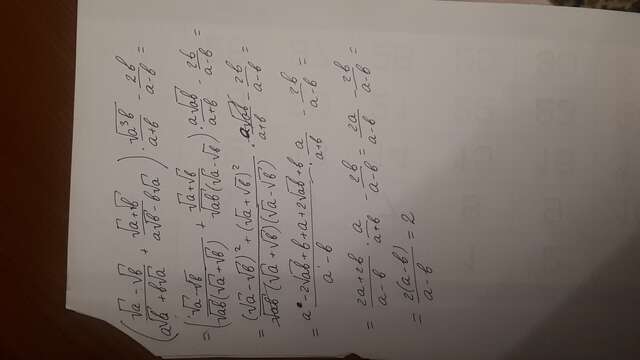 ((√a - √b)/(a√b + b√a) + (√a + √b)/(a√b - b√a)) · √(a³b)/(a+b) - 2b/(a-b) =
= ((√a - √b)/(√ab(√a + √b)) + (√a + √b)/(√ab(√a - √b))) · a√ab/(a+b) - 2b/(a-b) =
= ((√a - √b)² + (√a + √b)²)/(√ab(√a + √b)(√a - √b)) · a√ab/(a+b) - 2b/(a-b) =
= (a - 2√ab + b + a + 2√ab + b)/(a - b) · a/(a+b) - 2b/(a-b) =
= (2a + 2b)/(a - b) · a/(a+b) - 2b/(a-b) = 2a/(a-b) - 2b/(a-b) =
= 2(a-b)/(a-b) = 2